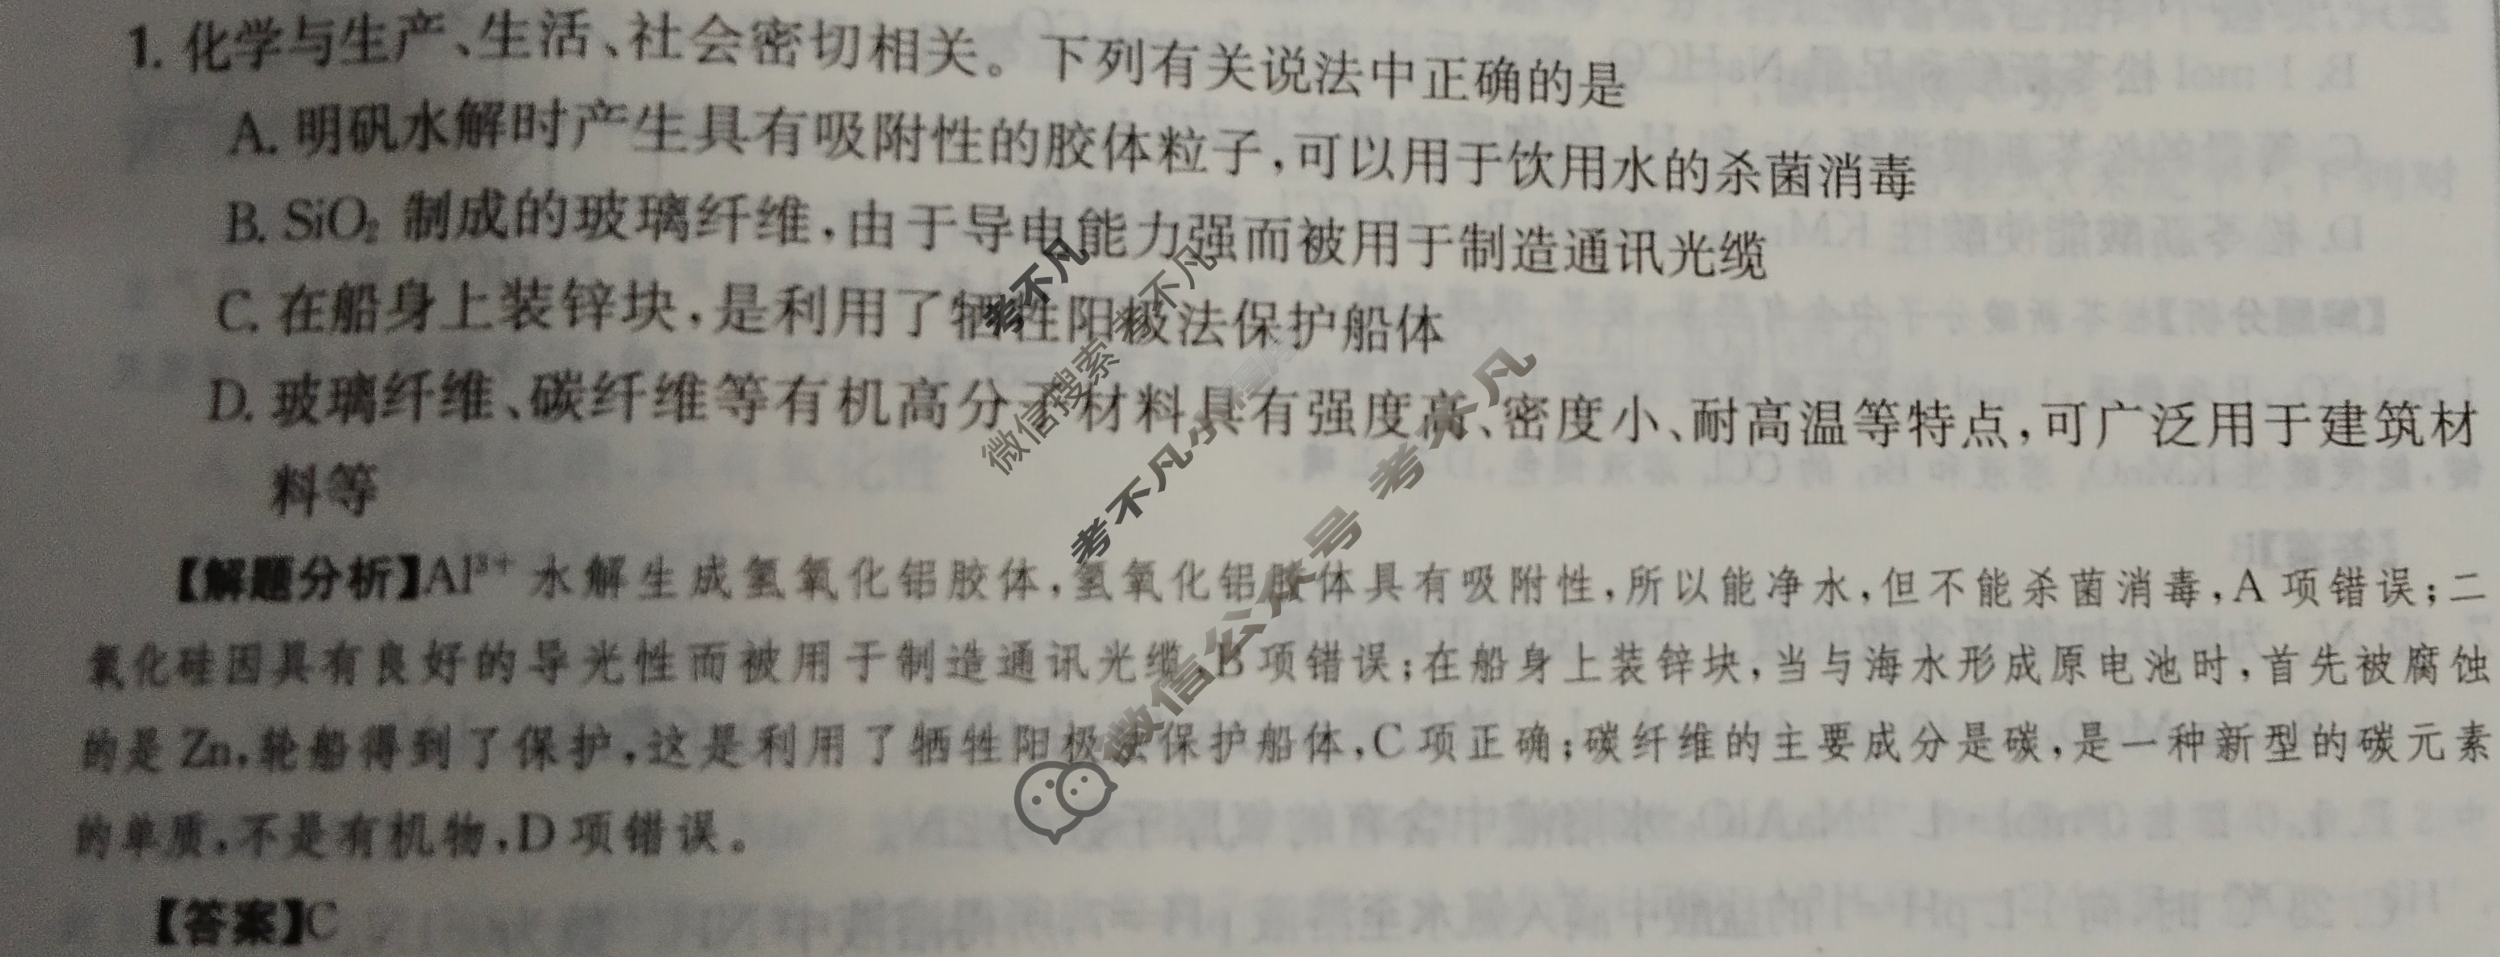 1. 化学与生产、生活、社会密切相关。下列有关说法中正确的是
A. 明矾水解时产生具有吸附性的胶体粒子,可以用于饮用水的杀菌消毒
B. SiO₂ 制成的玻璃纤维,由于导电能力强而被用于制造通讯光缆
C. 在船身上装锌块,是利用了牺牲阳极法保护船体
D. 玻璃纤维、碳纤维等有机高分子材料具有强度高、密度小、耐高温等特点,可广泛用于建筑材
料等
【解题分析】Al³⁺ 水解生成氢氧化铝胶体,氢氧化铝胶体具有吸附性,所以能净水,但不能杀菌消毒,A 项错误;二
氧化硅因具有良好的导光性而被用于制造通讯光缆,B 项错误;在船身上装锌块,当与海水形成原电池时,首先被腐蚀
的是 Zn,轮船得到了保护,这是利用了牺牲阳极法保护船体,C 项正确;碳纤维的主要成分是碳,是一种新型的碳元素
的单质,不是有机物,D 项错误。
【答案】C
考不凡
微信搜索 考不凡
考不凡小程序
微信公众号 考不凡